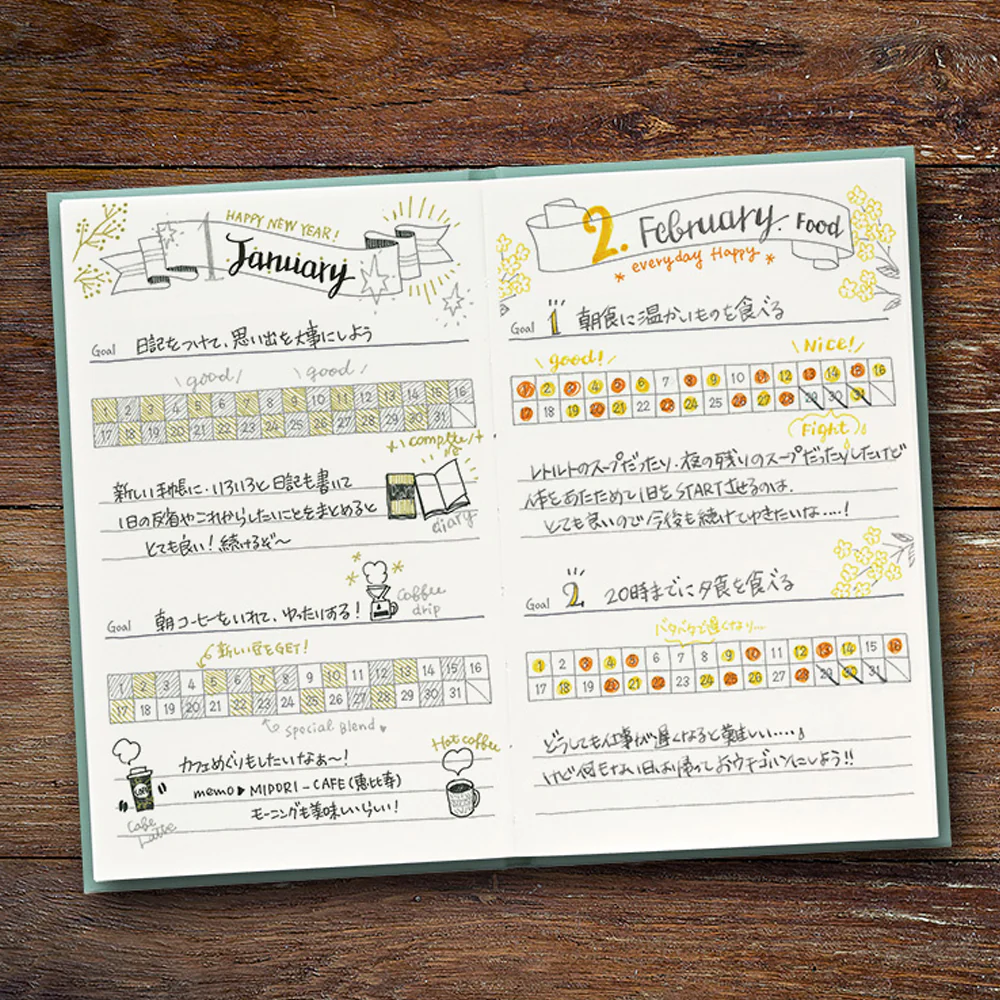 HAPPY NEW YEAR!
1
January
Goal 日記をつけて、思い出を大事にしよう
good!
good!
1 2 3 4 5 6 7 8 9 10 11 12 13 14 15 16
17 18 19 20 21 22 23 24 25 26 27 28 29 30 31
complete
新しい手帳に・いろいろと日記も書いて
1日の反省やこれからしたいことをまとめると
とても良い！続けるぞ〜
diary
Goal 朝コーヒーをいれて、ゆったりする！
Coffee
drip
新しい豆をGET!
1 2 3 4 5 6 7 8 9 10 11 12 13 14 15 16
17 18 19 20 21 22 23 24 25 26 27 28 29 30 31
Special Blend ♥
カフェめぐりもしたいなぁ〜!
memo▶MIDORI-CAFE(恵比寿)
モーニングも美味しいらしい!
Cafe
Latte
Hot coffee
2. February. Food
* everyday Happy *
Goal 1 朝食に温かいものを食べる
good!
Nice!
1 2 3 4 5 6 7 8 9 10 11 12 13 14 15 16
17 18 19 20 21 22 23 24 25 26 27 28 29 30 31
Fight
レトルトのスープだったり、夜の残りのスープだったりしたけど
体をあたためて1日をSTARTさせるのは、
とても良いので今後も続けてゆきたいな....!
Goal 2 20時までに夕食を食べる
バタバタで遅くなり...
1 2 3 4 5 6 7 8 9 10 11 12 13 14 15 16
17 18 19 20 21 22 23 24 25 26 27 28 29 30 31
どうしても仕事が遅くなると難しい....
けど何もない日はお帰っておウチゴハンにしよう!!